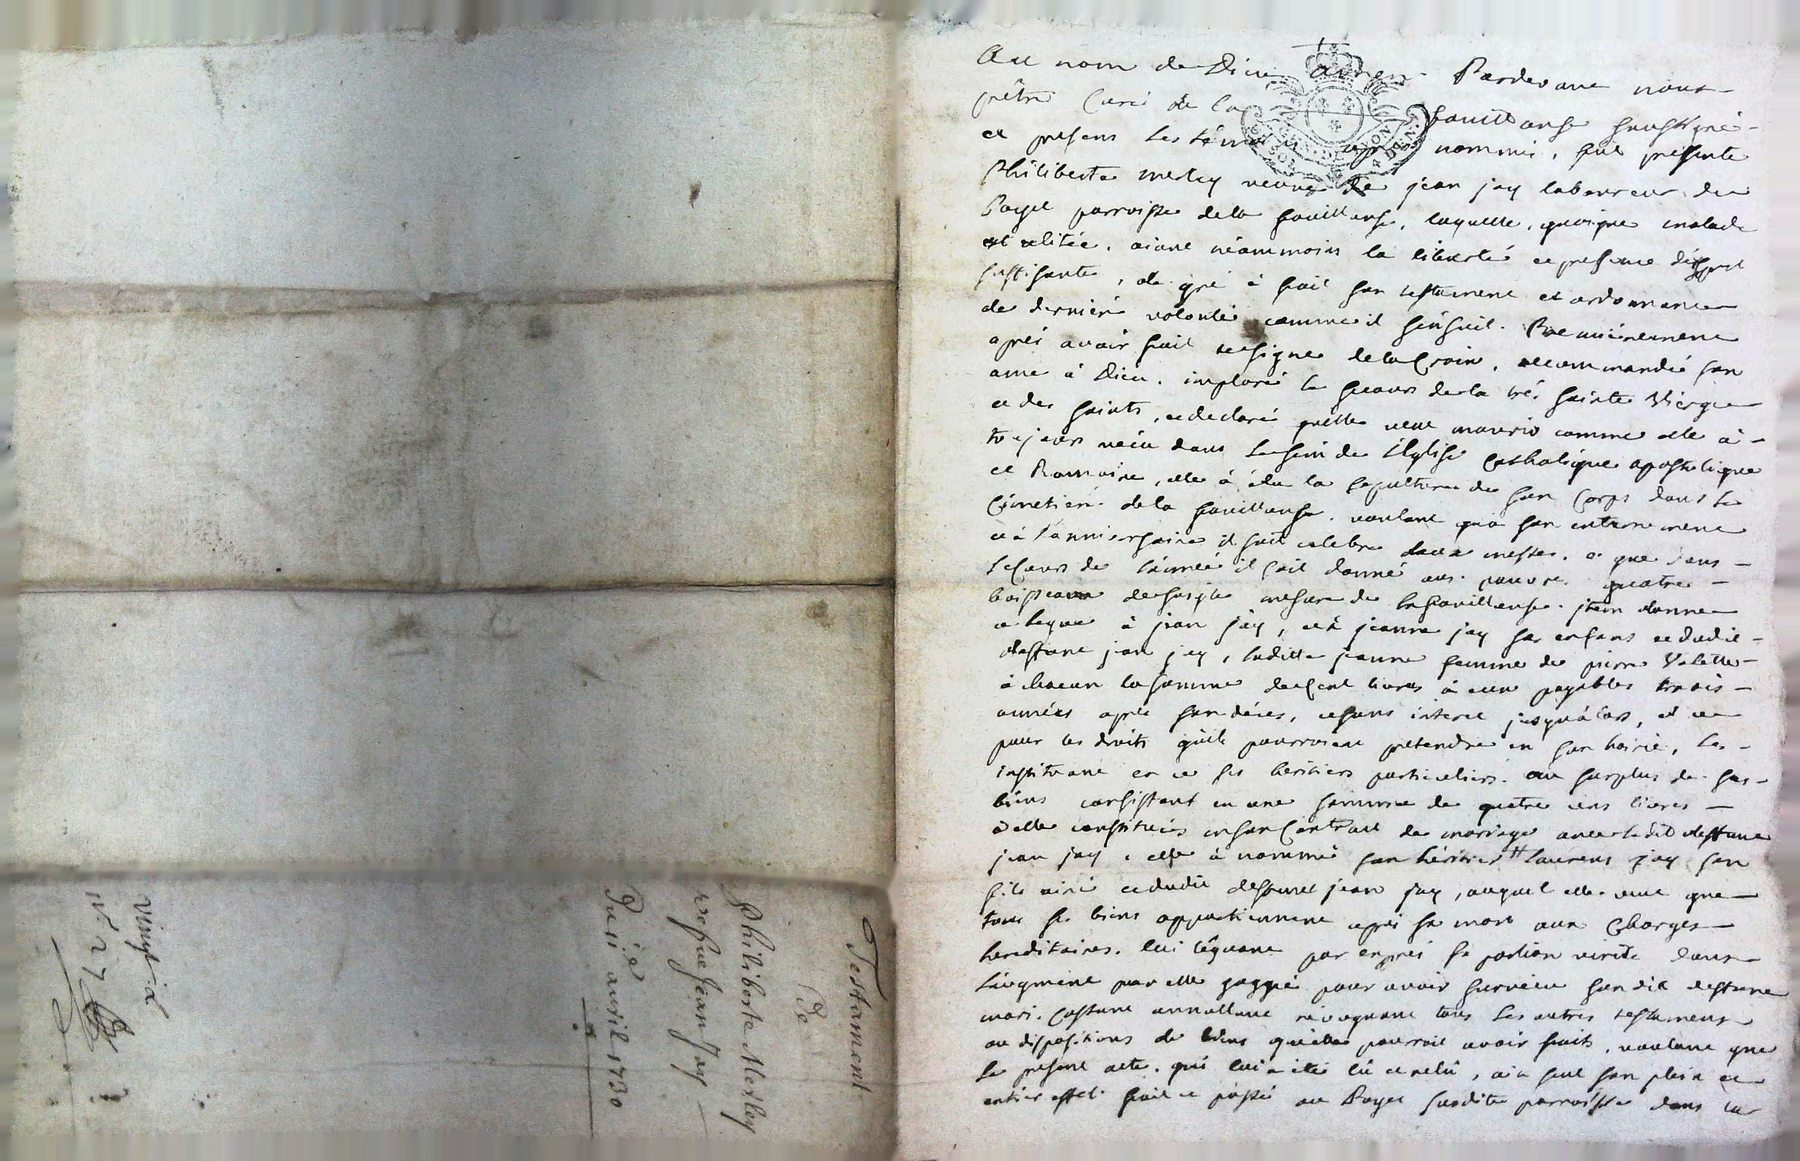 Au nom de Dieu amen. Pardevant nous
prêtre Curé de la fouillouse soussigné
et presens les témoins après nommés, fut presente
Philiberte merley veuve de jean jay laboureur du
Bayet parroisse de la fouillouse, laquelle, quoique malade
et alitée, aiant néammoins la liberté et presence d'esprit
suffisante, de gré à fait son testament et ordonnance
de derniere volonté comme il s'ensuit. Premiérement
aprés avoir fait le signe de la Croix, recommandé son
ame à Dieu, imploré le secours de la trés sainte Vierge
et des saints, et declaré qu'elle veut mourir comme elle à
toujours vécu dans le sein de l'Eglise Catholique apostolique
et Romaine, elle à élu la sepulture de son Corps dans le
Cimetiere de la fouillouse, voulant qu'à son enterrement
et à l'anniersaire il soit celebré deux messes, et que dans
le Cours de l'année il soit donné aux pauvres quatre
boisseaux de seigle mesure de la fouillouse. jtem donne
et legue à jean jay, et à jeanne jay ses enfans et dudit
deffunt jean jay, ladite jeanne femme de pierre Valette
à chacun la somme de cent livres à eux payables trois
années aprés son décès, et sans interet jusqu'alors, et ce
pour les droits qu'ils pourroient pretendre en son hoirie, les
instituant en ce ses héritiers particuliers. au surplus de ses
biens consistant en une somme de quatre cens livres
à elle constituées en son Contract de mariage avec ledit deffunt
jean jay, elle à nommé son héritier laurens jay son
fils ainé et dudit deffunct jean jay, auquel elle veut que
tous ses biens appartiennent aprés sa mort aux Charges
hereditaires, lui léguant par exprés sa portion virile dans
l'augment par elle gagné pour avoir survécu sondit deffunt
mari. Cassant annullant revoquant tous les autres testamens
ou dispositions de biens qu'elle pourroit avoir faits, voulant que
le present acte, qui lui à été lû et relû, ait seul son plein et
entier effet. fait et passé au Bayet susdite parroisse dans la
Testament
De
Philiberte Merley
vefue Jean Jay
Du 11 avril 1730
vingt
n° 27